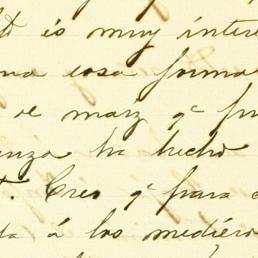 es muy inter
na cosa forma
de maiz qe fu
anza ha hecho
. Creo qe para
da á los mediero